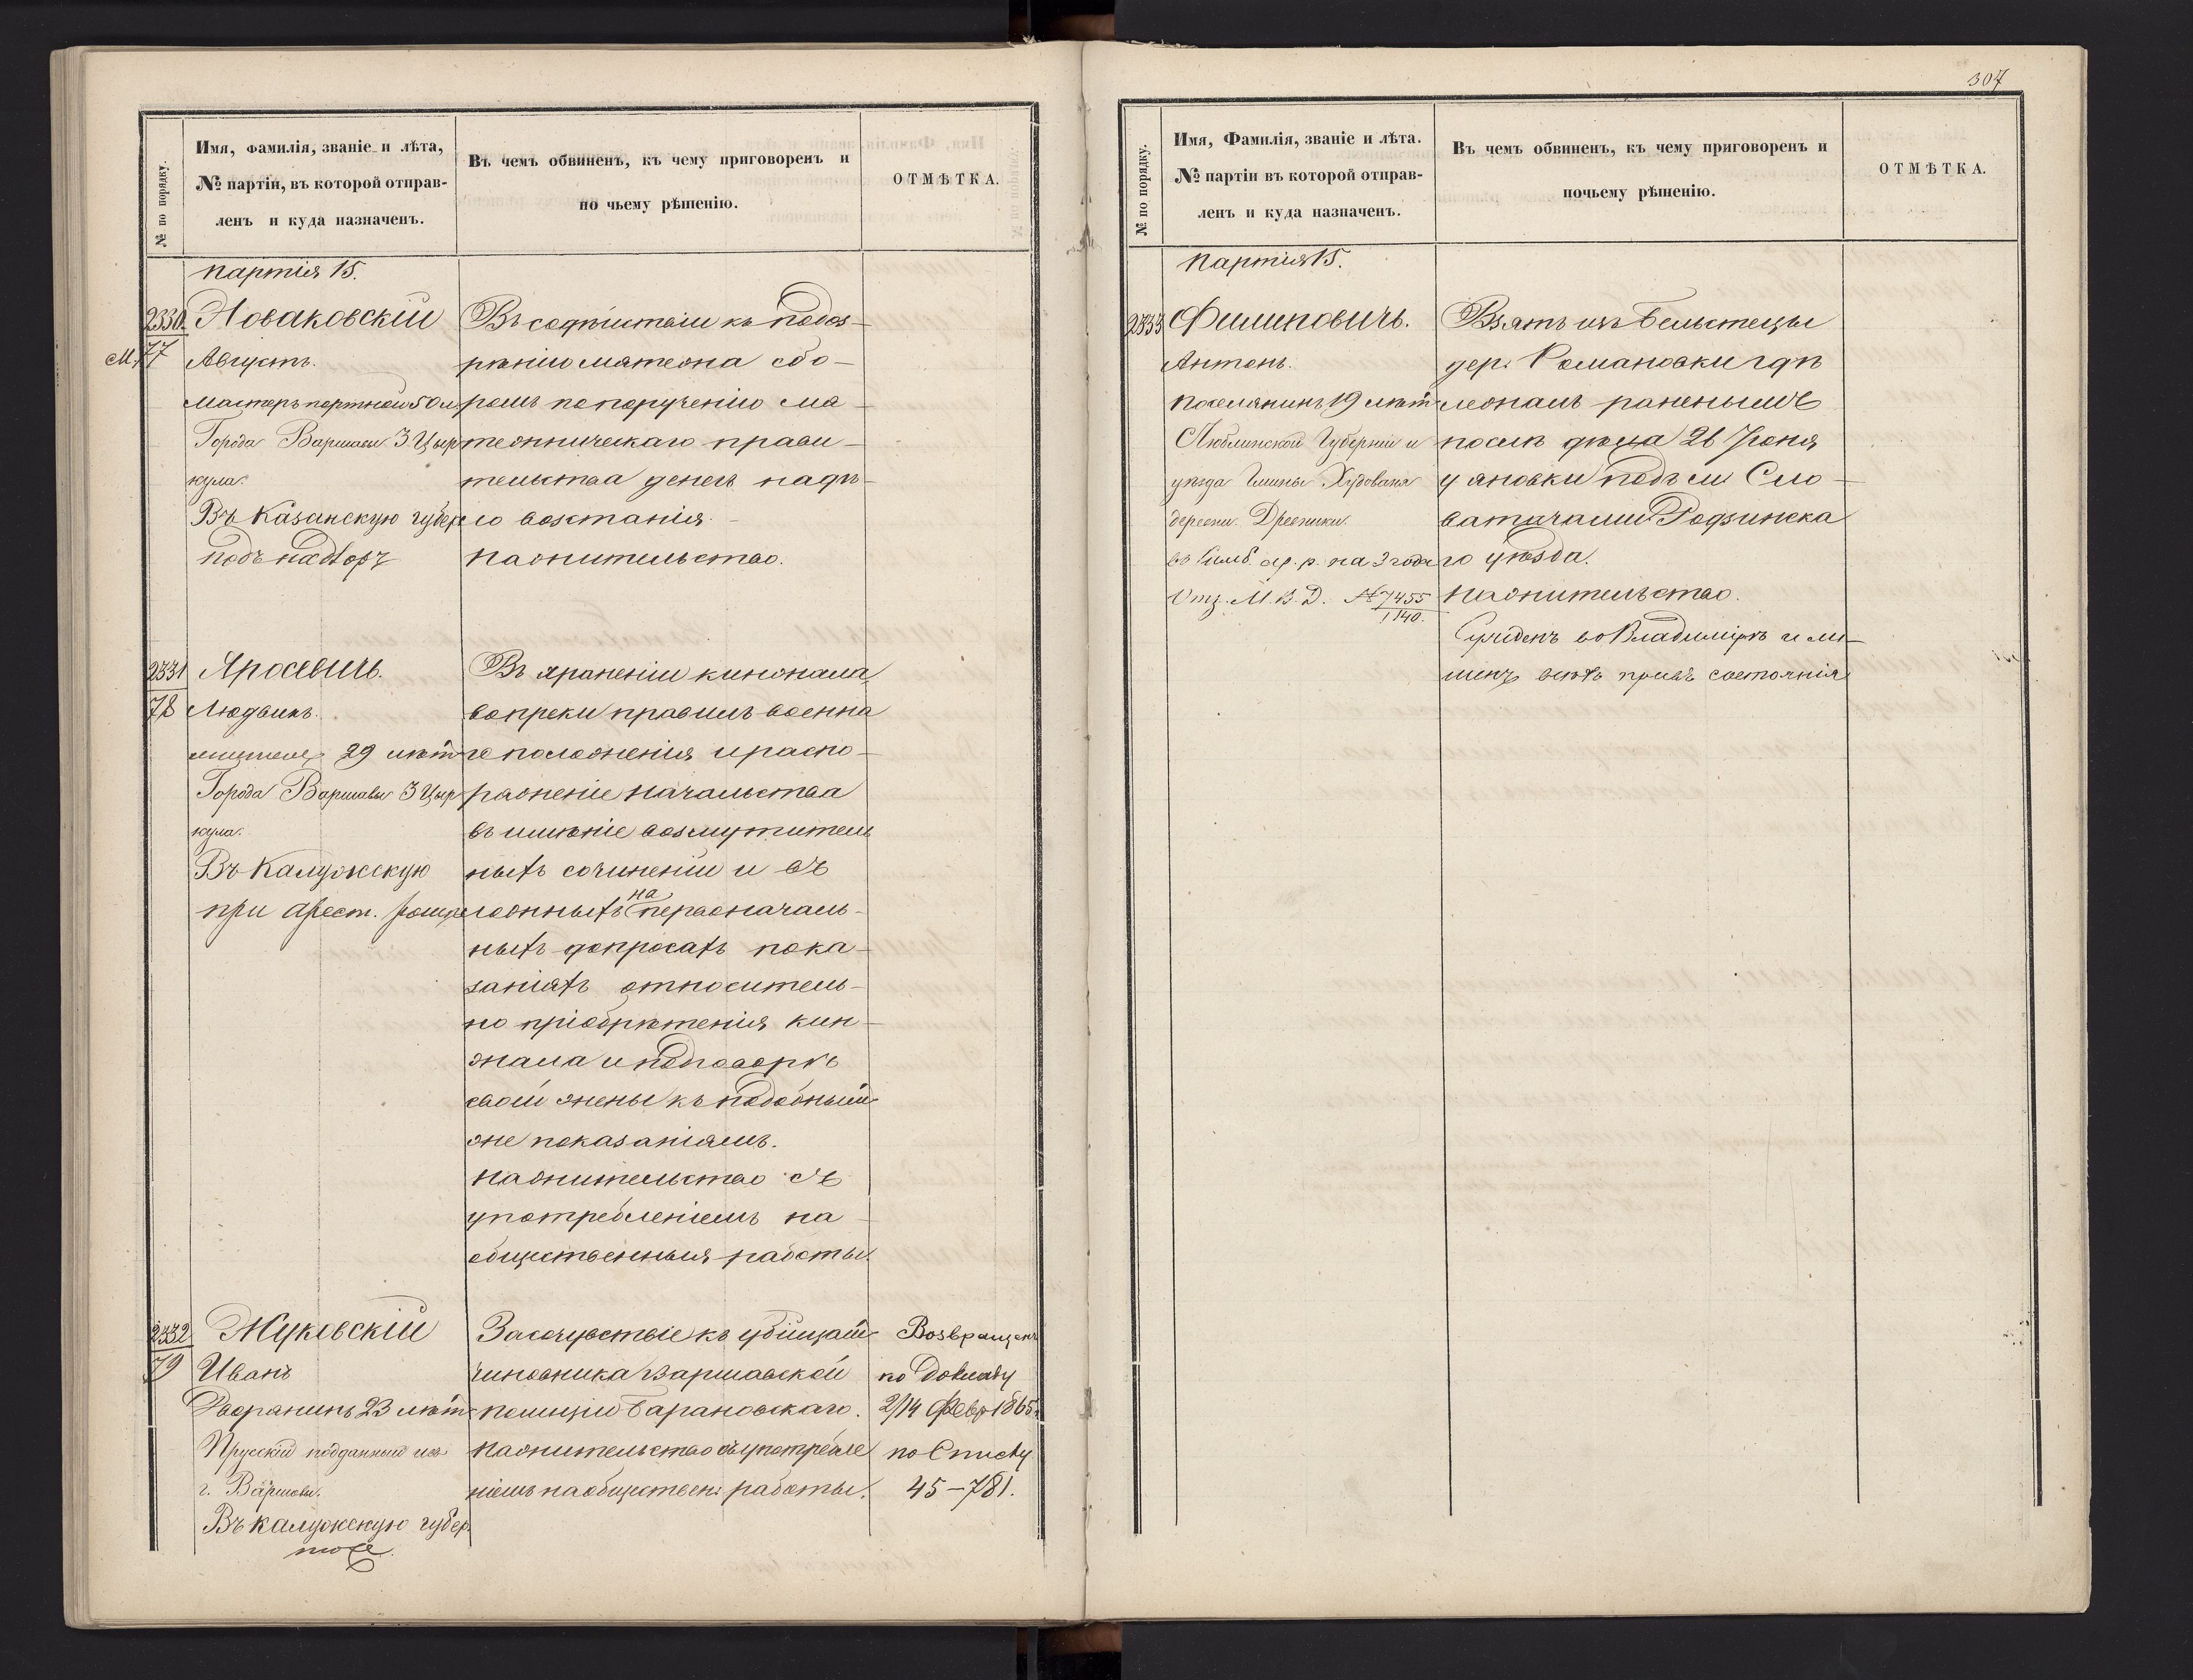 № по порядку.
Имя, фамилія, званіе и лѣта,
№ партіи, въ которой отправ-
ленъ и куда назначенъ.
Въ чемъ обвиненъ, къ чему приговоренъ и
по чьему рѣшенію.
ОТМѢТКА.
партія 15.
2330.
М. 77
Новаковскій
Августъ.
Мастеръ портной 50 л
Города Варшавы 3 Цыр
кула.
Въ Казанскую губер
подъ надзоръ
Въ содѣйствіи къ
рѣнію мятежа сбо-
ромъ по порученію мя-
тежническаго прави-
тельства денегъ на дѣ-
ло возстанія.
На жительство.
2331
78
Яросевичъ.
Людвикъ.
29 лѣтъ
Города Варшавы 3 Цыр
кула.
Въ Калужскую
при арест. ротѣ
Въ храненіи кинжала
вопреки правилъ военна
го положенія и распо-
ряженіе начальства
въ имѣніе возмутитель
ныхъ сочиненій и въ
ложныхъ на первоначаль-
ныхъ допросахъ пока-
заніяхъ относитель-
но пріобрѣтенія кин-
жала и подговорѣ
своей жены къ подобнымъ
же показаніямъ.
На жительство съ
употребленіемъ на
общественныя работы.
2332
79
Жуковскій
Иванъ
Дворянинъ 23 лѣтъ
Прусскій подданный изъ
г. Варшавы.
Въ Калужскую губер.
тоже.
За сочувствіе къ убійцамъ
чиновника Варшавской
полиціи Барановскаго.
На жительство съ употребле
ніемъ на обществен: работы.
Возвращенъ
по Докладу
2/14 Февр 1865 г.
по Списку
45 – 781.
307
№ по порядку.
Имя, Фамилія, званіе и лѣта.
№ партіи въ которой отправ-
ленъ и куда назначенъ.
Въ чемъ обвиненъ, къ чему приговоренъ и
почьему рѣшенію.
ОТМѢТКА.
Партія 15.
2333
Филиповичъ.
Антонъ.
Поселянинъ 19 лѣтъ
Люблинской Губерніи и
уѣзда Гмины
деревни
въ Симб. ар. р. на 3 года
Отз. М. В. Д. № 7455
1140.
Взятъ изъ
дер. Романовки гдѣ
лежалъ раненымъ
послѣ дѣла 26 Іюня
у
го уѣзда.
На жительство.
Сужденъ во Владимірѣ и ли-
шенъ всѣхъ правъ состоянія